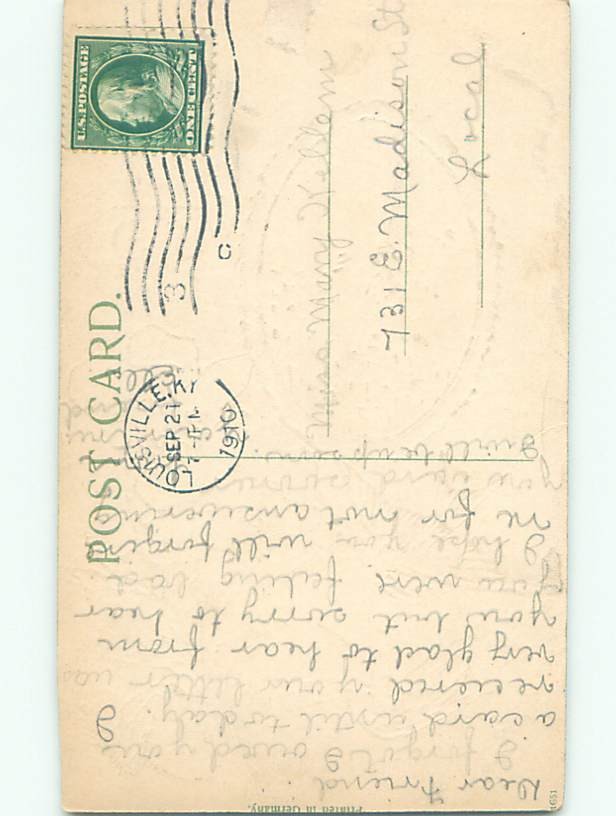 POST CARD.
U.S. POSTAGE
ONE CENT
LOUISVILLE, KY
SEP 21
1910
3
C
Miss Mary Kellem
731 E. Madison St
Local
Dear Friend.
I forgot I owed you
a card until to day. I
received your letter was
very glad to hear from
you but sorry to hear
you were feeling bad.
I hope you will forgive
me for not answering
your card sooner.
I will be up soon.
Printed in Germany.
1651